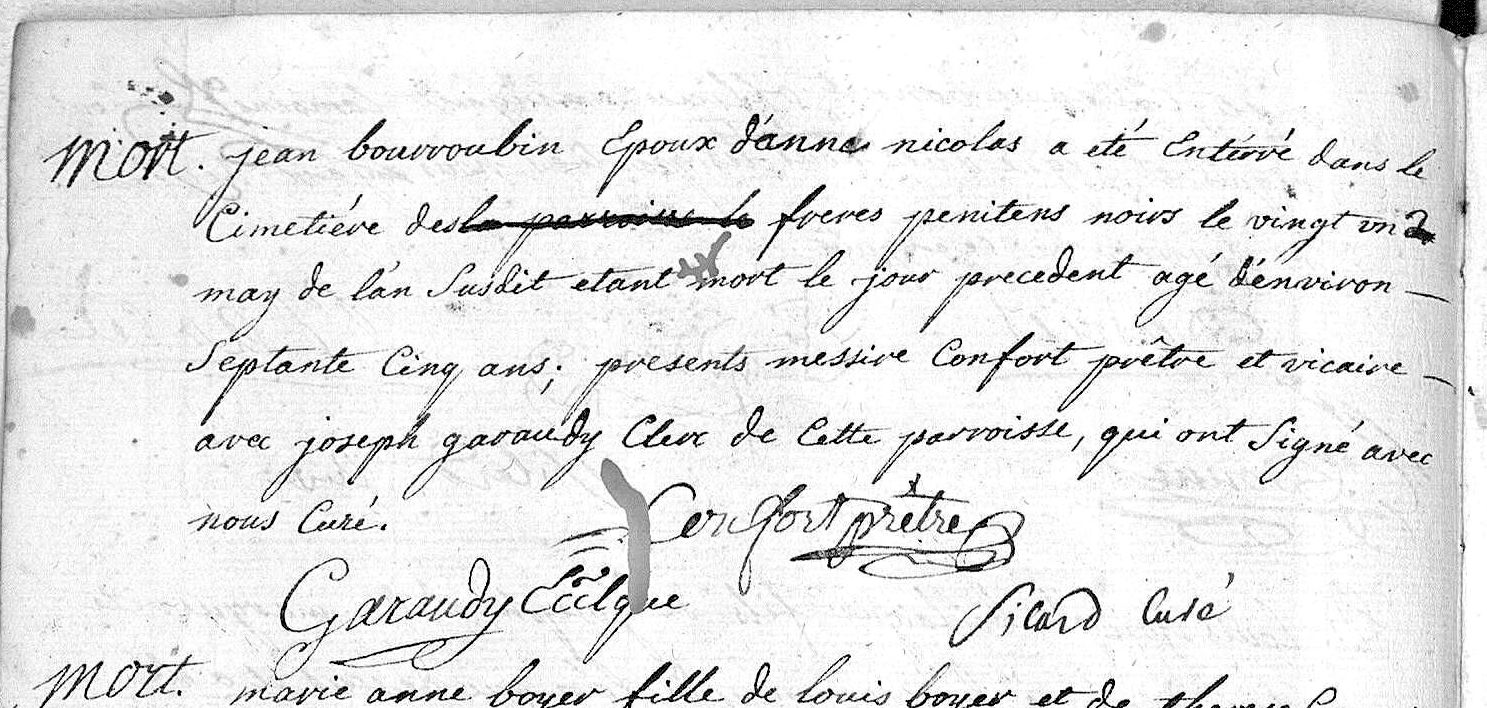 mort. jean bourroubin Epoux d'anne nicolas a eté Enterré dans le
Cimetiére des la parroisse le freres penitens noirs le vingt un
may de l'an Susdit etant mort le jour precedent agé d'environ
Septante Cinq ans; presents messire Confort prêtre et vicaire
avec joseph garaudy Clerc de Cette parroisse, qui ont Signé avec
nous Curé.
Confort prêtre
Garaudy Eccl'que
Sicard Curé
mort. marie anne boyer fille de louis boyer et de therese